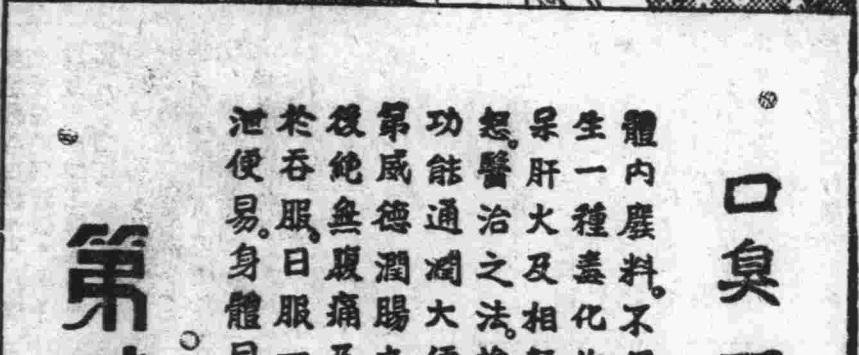 口臭
體內廢料。不
生一種毒化
呆肝火及相
起。醫治之法。
功能通潤大便
第威德潤腸
後絶無腹痛及
於吞服。日服一
泄便易。身體
第